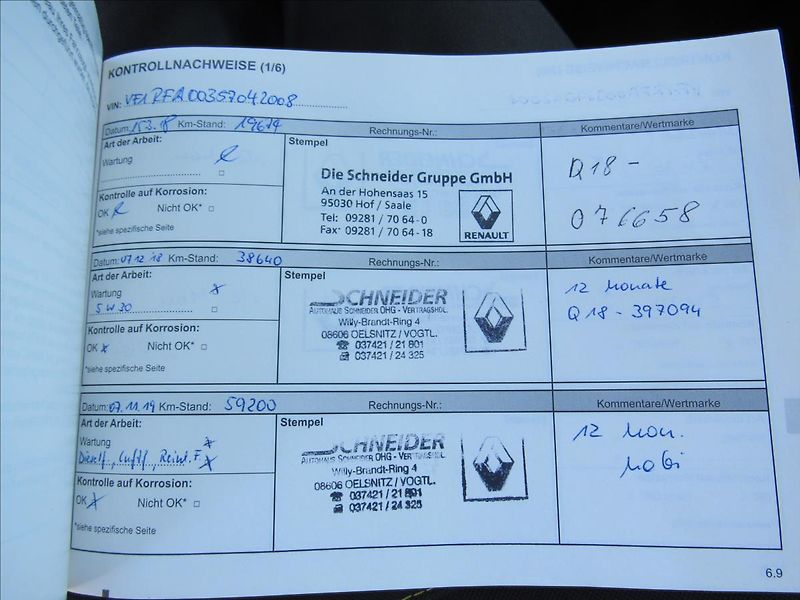 KONTROLLNACHWEISE (1/6)
VIN: VF1RFA00357042008
Datum: 15.3.18 Km-Stand: 19674 Rechnungs-Nr.: Kommentare/Wertmarke
Art der Arbeit:
Wartung
Kontrolle auf Korrosion:
OK Nicht OK*
*siehe spezifische Seite
Stempel
Die Schneider Gruppe GmbH
An der Hohensaas 15
95030 Hof / Saale
Tel: 09281 / 70 64-0
Fax: 09281 / 70 64-18
RENAULT
Q18 -
076658
Datum: 07.12.18 Km-Stand: 38640 Rechnungs-Nr.: Kommentare/Wertmarke
Art der Arbeit:
Wartung
5W30
Kontrolle auf Korrosion:
OK Nicht OK*
*siehe spezifische Seite
Stempel
SCHNEIDER
AUTOHAUS SCHNEIDER OHG - VERTRAGSHDL.
Willy-Brandt-Ring 4
08606 OELSNITZ / VOGTL.
037421 / 21 801
037421 / 24 325
12 Monate
Q18 - 397094
Datum: 07.11.19 Km-Stand: 59200 Rechnungs-Nr.: Kommentare/Wertmarke
Art der Arbeit:
Wartung
Kontrolle auf Korrosion:
OK Nicht OK*
*siehe spezifische Seite
Stempel
SCHNEIDER
AUTOHAUS SCHNEIDER OHG - VERTRAGSHDL.
Willy-Brandt-Ring 4
08606 OELSNITZ / VOGTL.
037421 / 21 801
037421 / 24 325
12 Mon.
Mobi
6.9